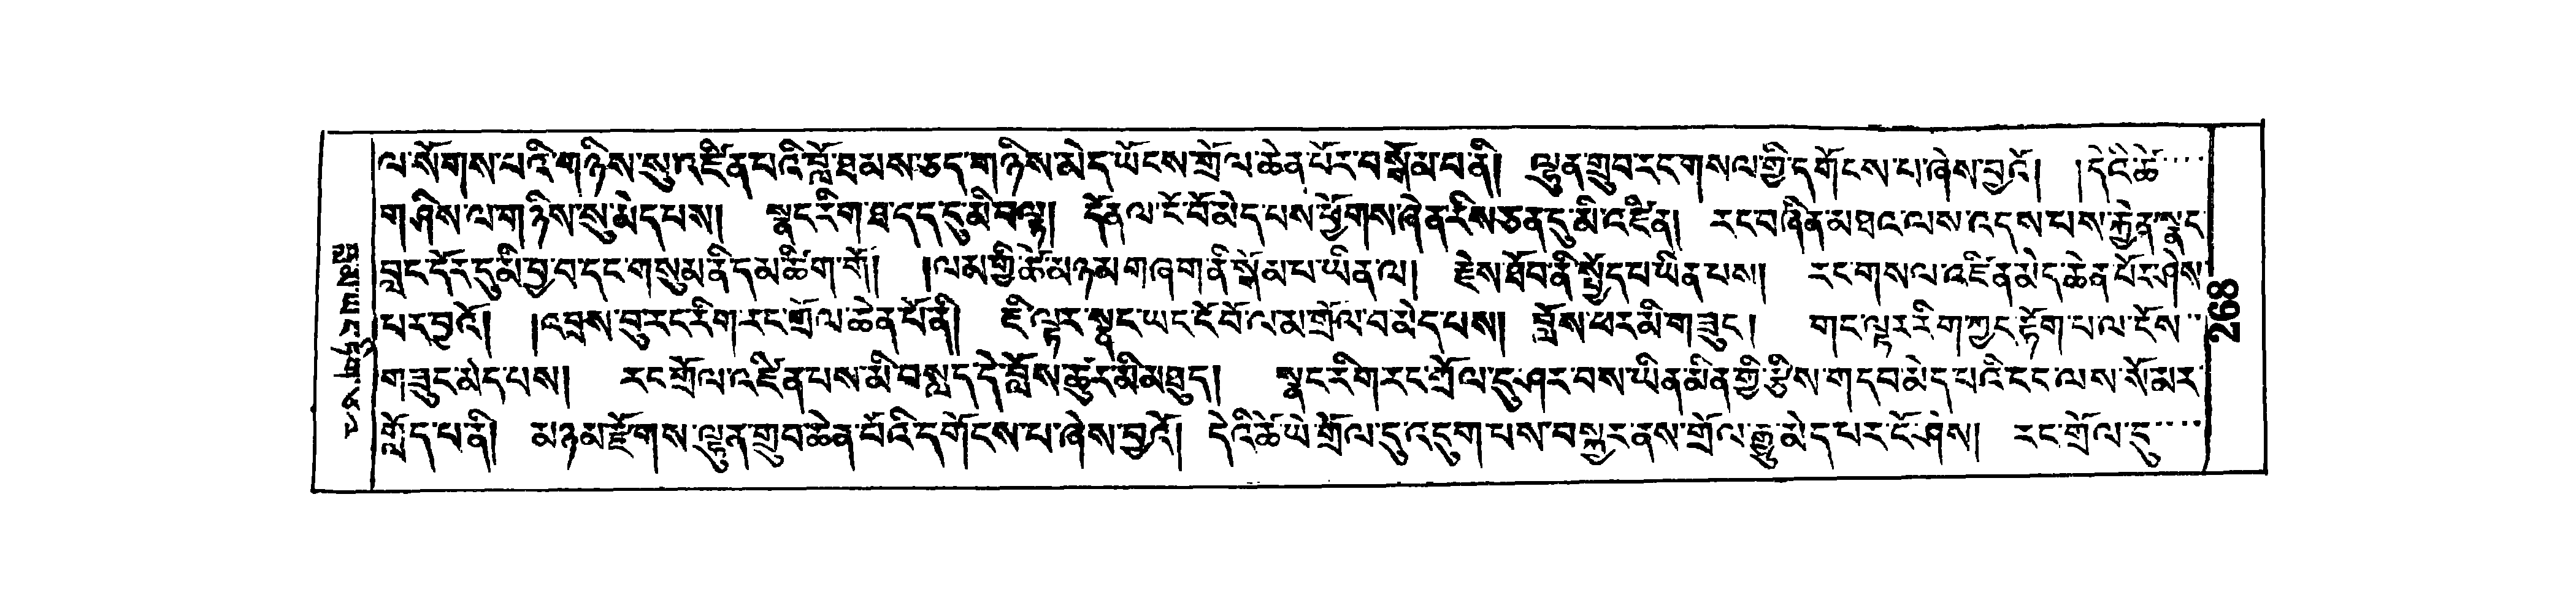 ལ་སོགས་པའི་གཉིས་སུ་འཛིན་པའི་བློ་ཐམས་ཅད་གཉིས་མེད་ཡོངས་གྲོལ་ཆེན་པོར་བསྒོམ་པ་ནི། ལྷུན་གྲུབ་རང་གསལ་གྱི་དགོངས་པ་ཞེས་བྱའོ། །དེའི་ཚེ་····
གཤིས་ལ་གཉིས་སུ་མེད་པས། སྣང་རིག་ཐ་དད་དུ་མི་བལྟ། དོན་ལ་ངོ་བོ་མེད་པས་ཕྱོགས་ཞེན་རིས་ཅན་དུ་མི་འཛིན། རང་བཞིན་མཐའ་ལས་འདས་པས་རྐྱེན་སྣང་
བླང་དོར་དུ་མི་བྱ་བ་དང་གསུམ་ནི་དམ་ཚིག་གོ། །ལམ་གྱི་ཚེ་མཉམ་གཞག་ནི་སྒོམ་པ་ཡིན་ལ། རྗེས་ཐོབ་ནི་སྤྱོད་པ་ཡིན་པས། རང་གསལ་འཛིན་མེད་ཆེན་པོར་ཤེས་
པར་བྱའོ། །འབྲས་བུ་རང་རིག་རང་གྲོལ་ཆེན་པོ་ནི། ཇི་ལྟར་སྣང་ཡང་ངོ་བོ་ལ་མ་གྲོལ་བ་མེད་པས། བློས་ཕར་མི་གཟུང་། གང་ལྟར་རིག་ཀྱང་རྟོག་པ་ལ་ངོས་··
གཟུང་མེད་པས། རང་གྲོལ་འཛིན་པས་མི་བསླད་དེ་བློས་ཚུར་མི་མཐུད། སྣང་རིག་རང་གྲོལ་དུ་ཤར་བས་ཡིན་མིན་གྱི་རྩིས་གདབ་མེད་པའི་ངང་ལས་སོ་མར་
ཀློད་པ་ནི། མཉམ་རྫོགས་ལྷུན་གྲུབ་ཆེན་པོའི་དགོངས་པ་ཞེས་བྱའོ། དེའི་ཚེ་ཡེ་གྲོལ་དུ་འདུག་པས་བསྐྱར་ནས་གྲོལ་རྒྱུ་མེད་པར་ངོ་ཤེས། རང་གྲོལ་དུ་····